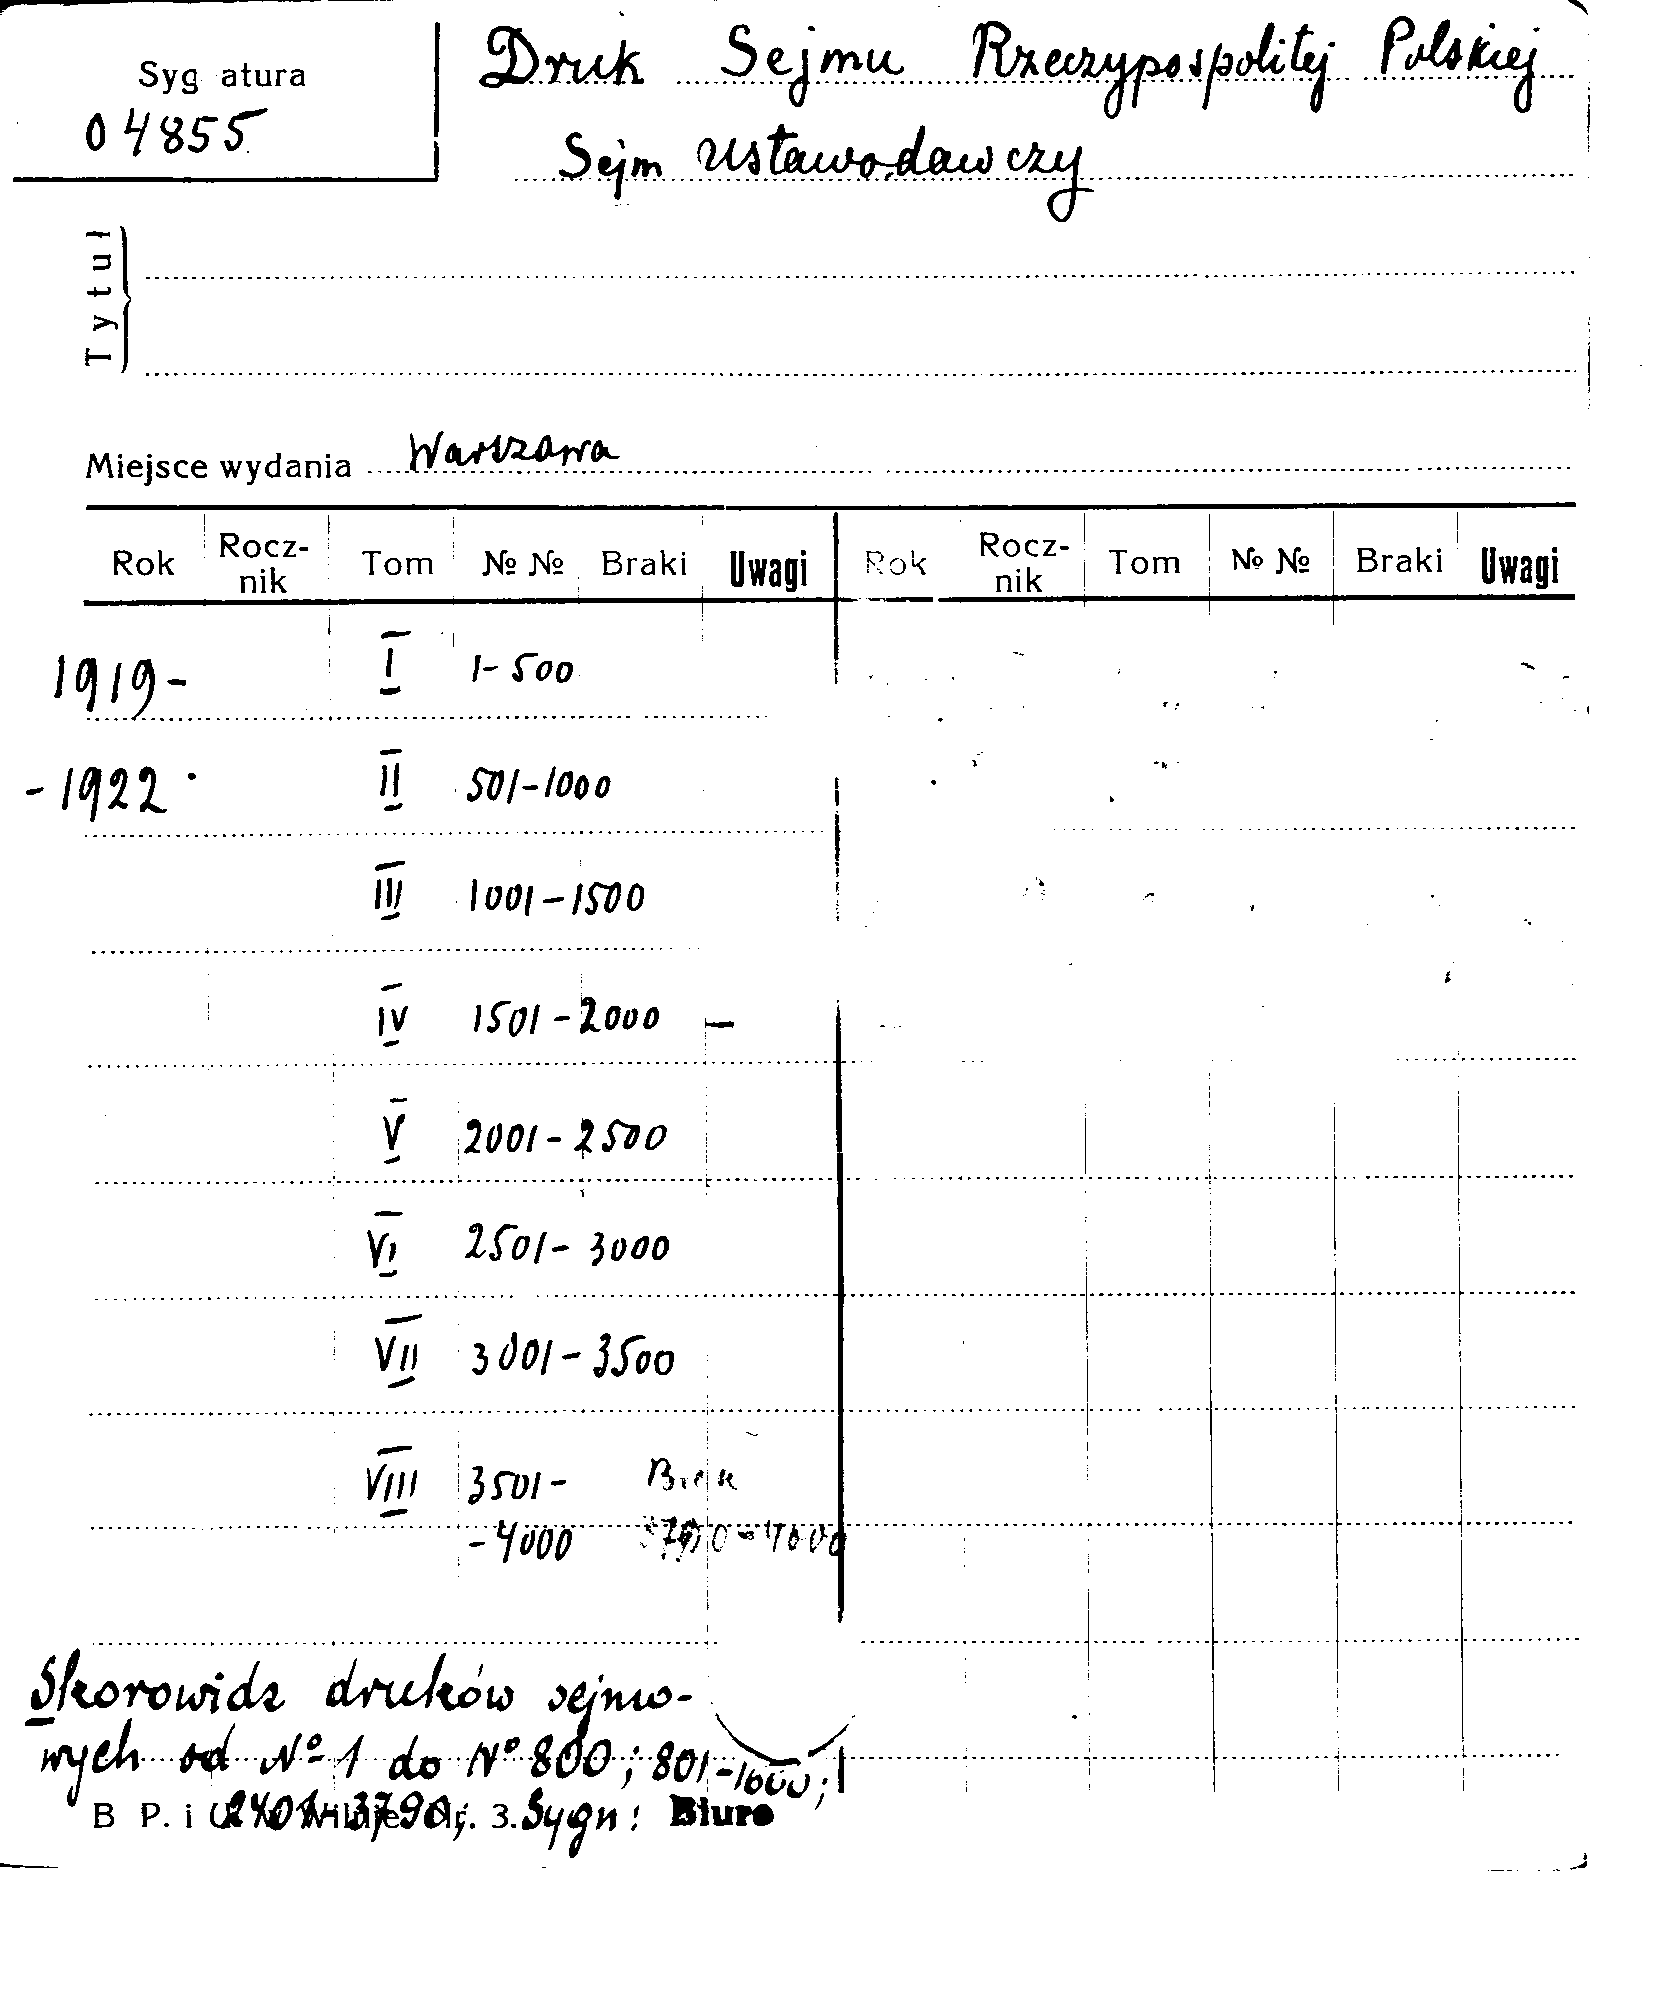 Syg atura
04855
Druk Sejmu Rzeczypospolitej Polskiej
Sejm Ustawodawczy
Tytuł
Miejsce wydania Warszawa
Rok Rocz-nik Tom № № Braki Uwagi Rok Rocz-nik Tom № № Braki Uwagi
1919- I 1-500
-1922 II 501-1000
III 1001-1500
IV 1501-2000 -
V 2001-2500
VI 2501-3000
VII 3001-3500
VIII 3501-
-4000
Skorowidz druków sejmo-
wych od Nº 1 do Nº 800; 801-1600;
B P. i 2401-3790; 3. Sygn: Biuro